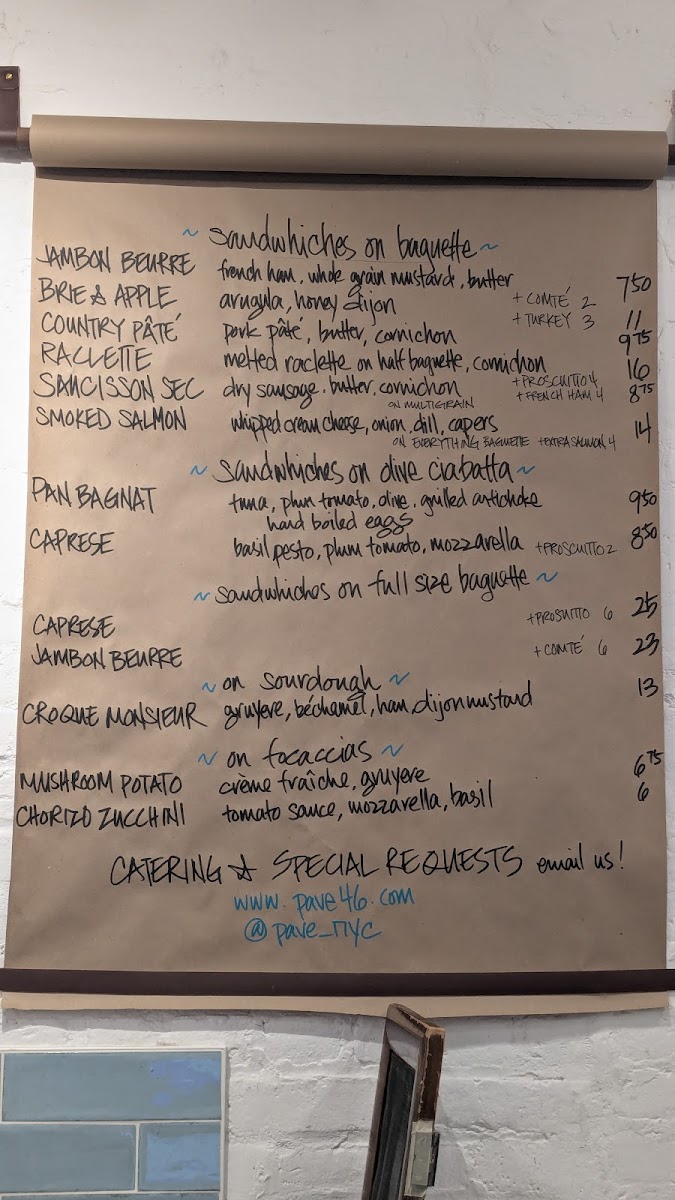 ~ sandwhiches on baguette ~
JAMBON BEURRE french ham, whole grain mustard, butter 7 50
BRIE & APPLE arugula, honey dijon + COMTÉ 2 + TURKEY 3 11
COUNTRY PÂTÉ pork pâté, butter, cornichon 9 75
RACLETTE melted raclette on half baguette, cornichon + PROSCUITTO 4 + FRENCH HAM 4 16
SAUCISSON SEC dry sausage, butter, cornichon 8 75
ON MULTIGRAIN
SMOKED SALMON whipped cream cheese, onion, dill, capers 14
ON EVERYTHING BAGUETTE + EXTRA SALMON 4
~ sandwhiches on olive ciabatta ~
PAN BAGNAT tuna, plum tomato, olive, grilled artichoke 9 50
hard boiled eggs
CAPRESE basil pesto, plum tomato, mozzarella + PROSCUITTO 2 8 50
~ sandwhiches on full size baguette ~
CAPRESE + PROSUITTO 6 25
JAMBON BEURRE + COMTÉ 6 23
~ on sourdough ~
CROQUE MONSIEUR gruyere, béchamel, ham, dijon mustard 13
~ on focaccias ~
MUSHROOM POTATO crème fraîche, gruyere 6 75
CHORIZO ZUCCHINI tomato sauce, mozzarella, basil 6
CATERING & SPECIAL REQUESTS email us!
www.pave46.com
@pave_nyc